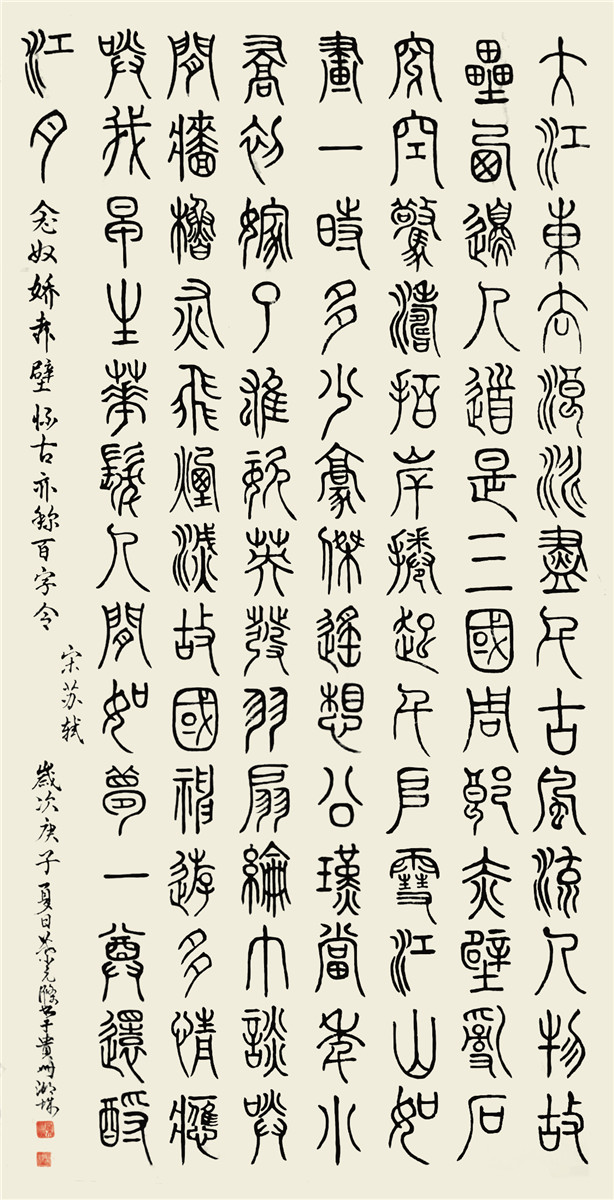 大江東去浪淘盡千古風流人物故
壘西邊人道是三國周郎赤壁亂石
穿空驚濤拍岸捲起千堆雪江山如
畫一時多少豪傑遙想公瑾當年小
喬初嫁了雄姿英發羽扇綸巾談笑
間檣櫓灰飛煙滅故國神遊多情應
笑我早生華髮人間如夢一尊還酹
江月
念奴娇赤壁怀古亦称百字令
宋苏轼
歲次庚子夏日